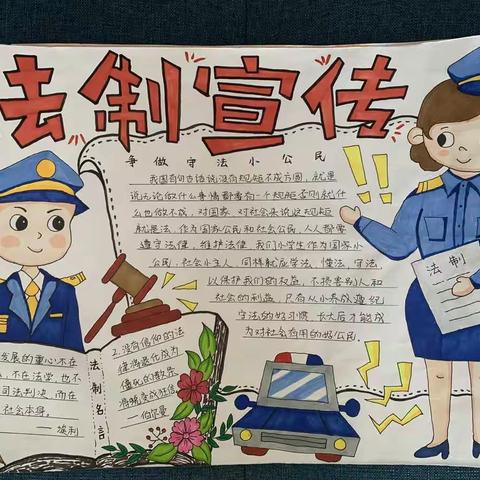 法制宣传
争做守法小公民
我国有句古话说:没有规矩不成方圆,就是
说无论做什么事情都要有一个规矩,否则就什
么也做不成,对国家、对社会来说这规矩
就是法,作为国家公民和社会公民,人人都要
遵守法律,维护法律,我们小学生作为国家小
公民,社会小主人,同样就应学法、懂法、守法,
以保护我们的权益,不损害别人和
社会的利益,只有从小养成遵纪
守法的好习惯,长大后才能成
为对社会有用的好公民.
法制
发展的重心不在
不在法学,也不
司法判决,而在
社会本身.
——埃利
法制名言
2.没有信仰的法
律将退化成为
僵死的教条
——伯尔曼